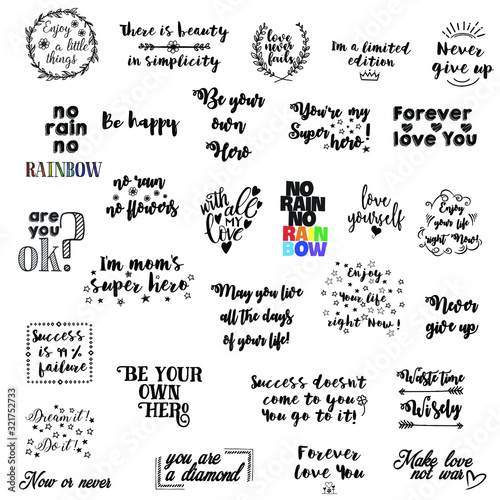 Enjoy
a little
things
There is beauty
in simplicity
love
never
fails
I'm a limited
edition
Never
give up
no
rain
no
RAINBOW
Be happy
Be your
own
Hero
You're my
Super hero!
Forever
love You
are
you
ok?
no rain
no flowers
with all
MY
LOVE
NO
RAIN
NO
RAIN
BOW
love
yourself
Enjoy
your life
right Now!
I'm mom's
super hero
May you live
all the days
of your life!
Enjoy
Your life
right Now!
Never
give up
Success
is 99%
failure
BE YOUR
OWN
HERO
Success doesn't
come to you
You go to it!
Waste time
Wisely
Dream it!
Do it!
Now or never
you are
a diamond
Forever
Love You
Make love
not war
Adobe Stock | #321752733